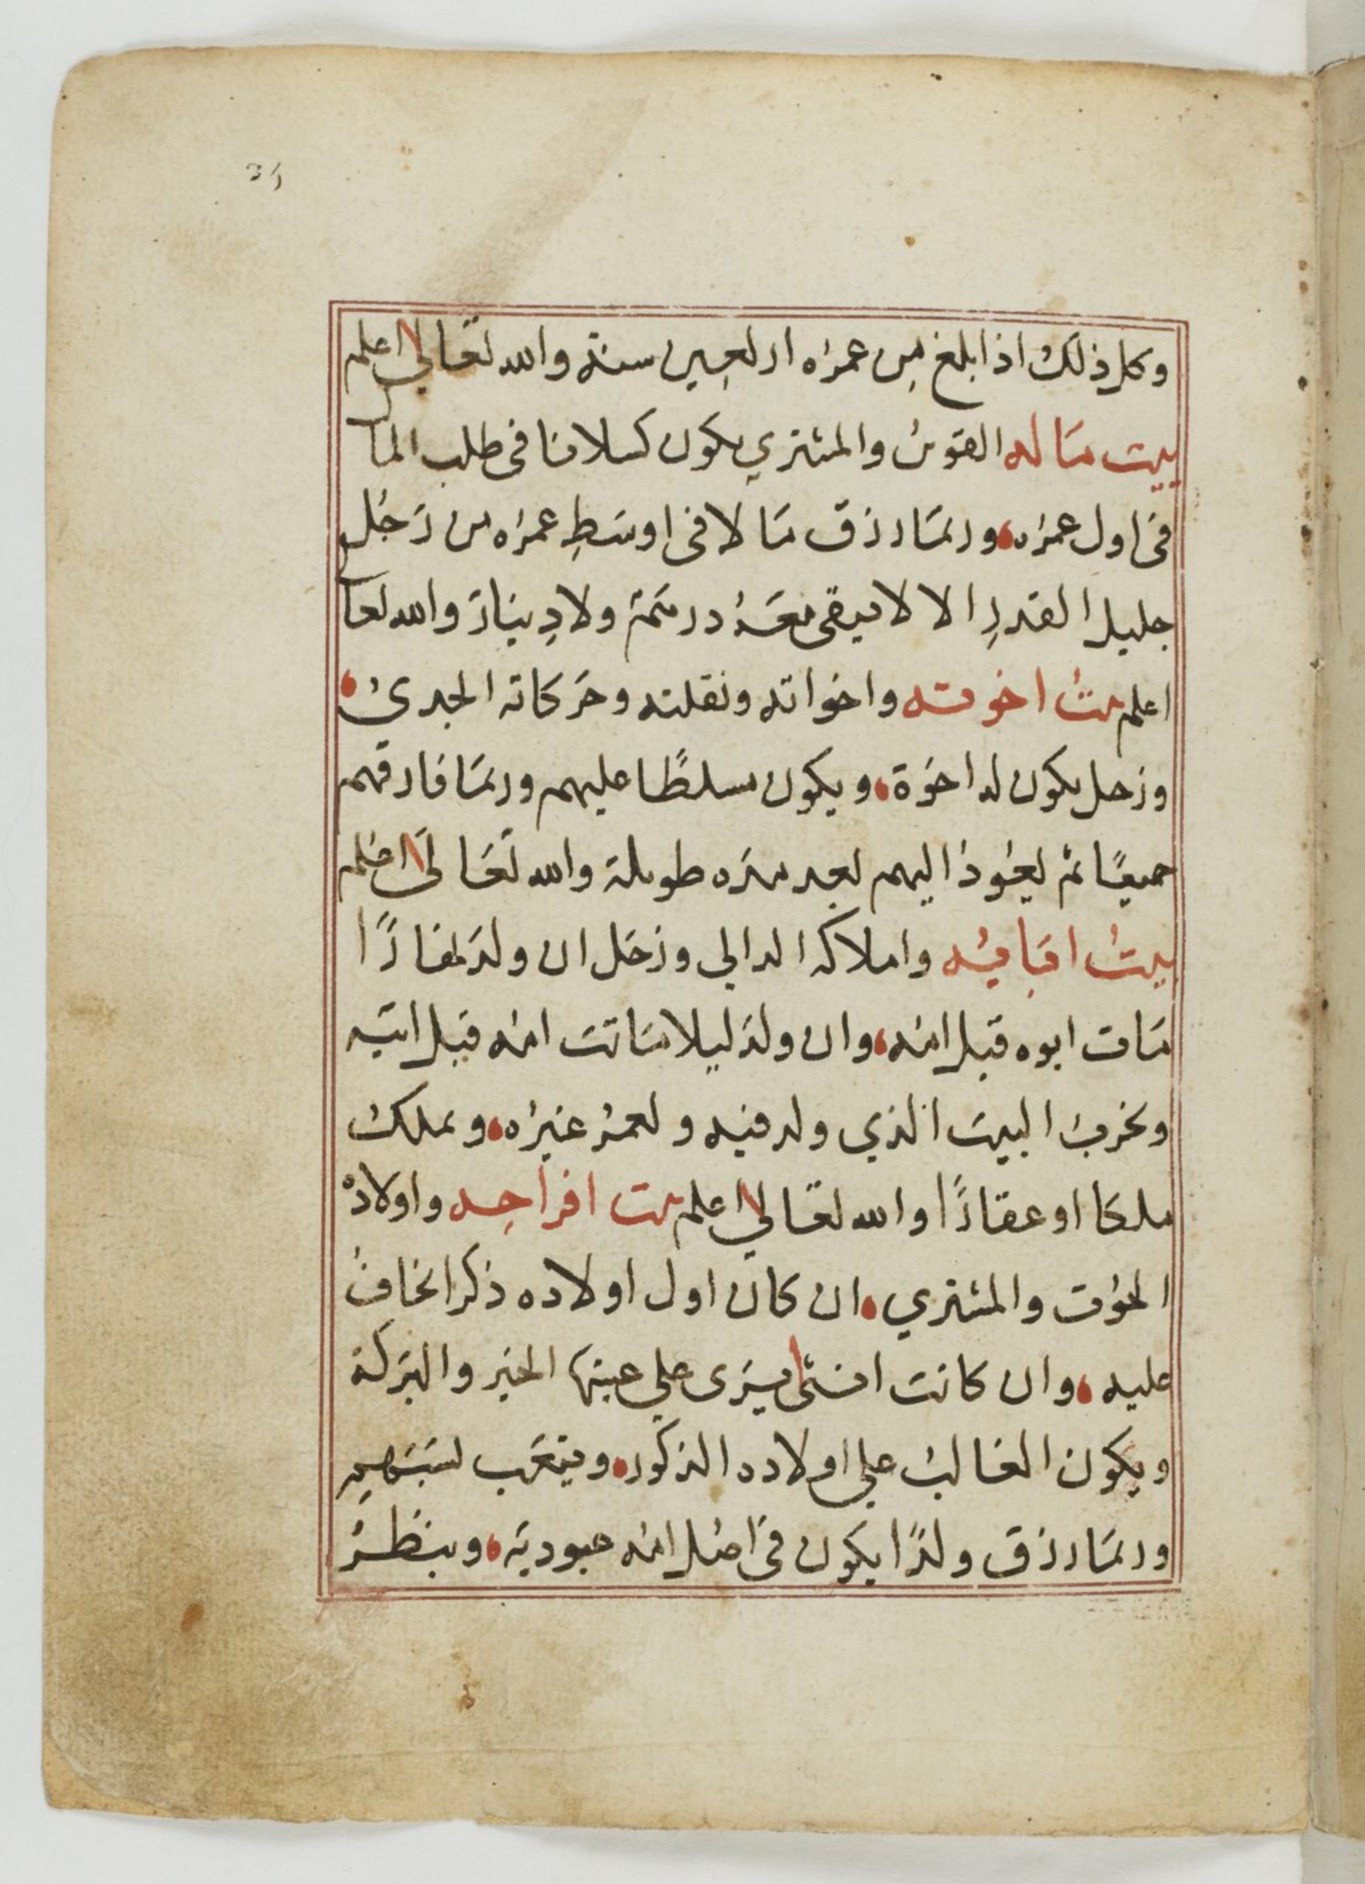 وكل ذلك اذا بلغ من عمره اربعين سنة والله تعالى اعلم
بيت ماله القوس والمشتري يكون كسلانا فى طلب المال
فى اول عمره وربما رزق مالا فى اوسط عمره من رجل
جليل القدر الا لا يبقى معه درهم ولا دينار والله تعا
اعلم بيت اخوته واخواته ونقلته وحركاته الجدي
وزحل يكون له اخوة ويكون مسلطا عليهم وربما فارقهم
جميعا ثم يعود اليهم بعد مده طويلة والله تعالى اعلم
بيت ابايه واملاكه الدالي وزحل ان ولد نهارا
مات ابوه قبل امه وان ولد ليلا ماتت امه قبل ابيه
ويخرب البيت الذي ولد فيه ويعمر غيره ويملك
ملكا او عقارا والله تعالى اعلم بيت افراحه واولاده
الحوت والمشتري ان كان اول اولاده ذكرا يخاف
عليه وان كانت انثى يرى على عينها الخير والبركة
ويكون الغالب على اولاده الذكور ويتعب لسببهم
وربما رزق ولدا يكون فى اصل امه عبودية وينظر